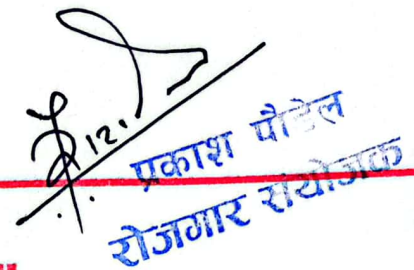 प्रकाश पौडेल
रोजगार संयोजक